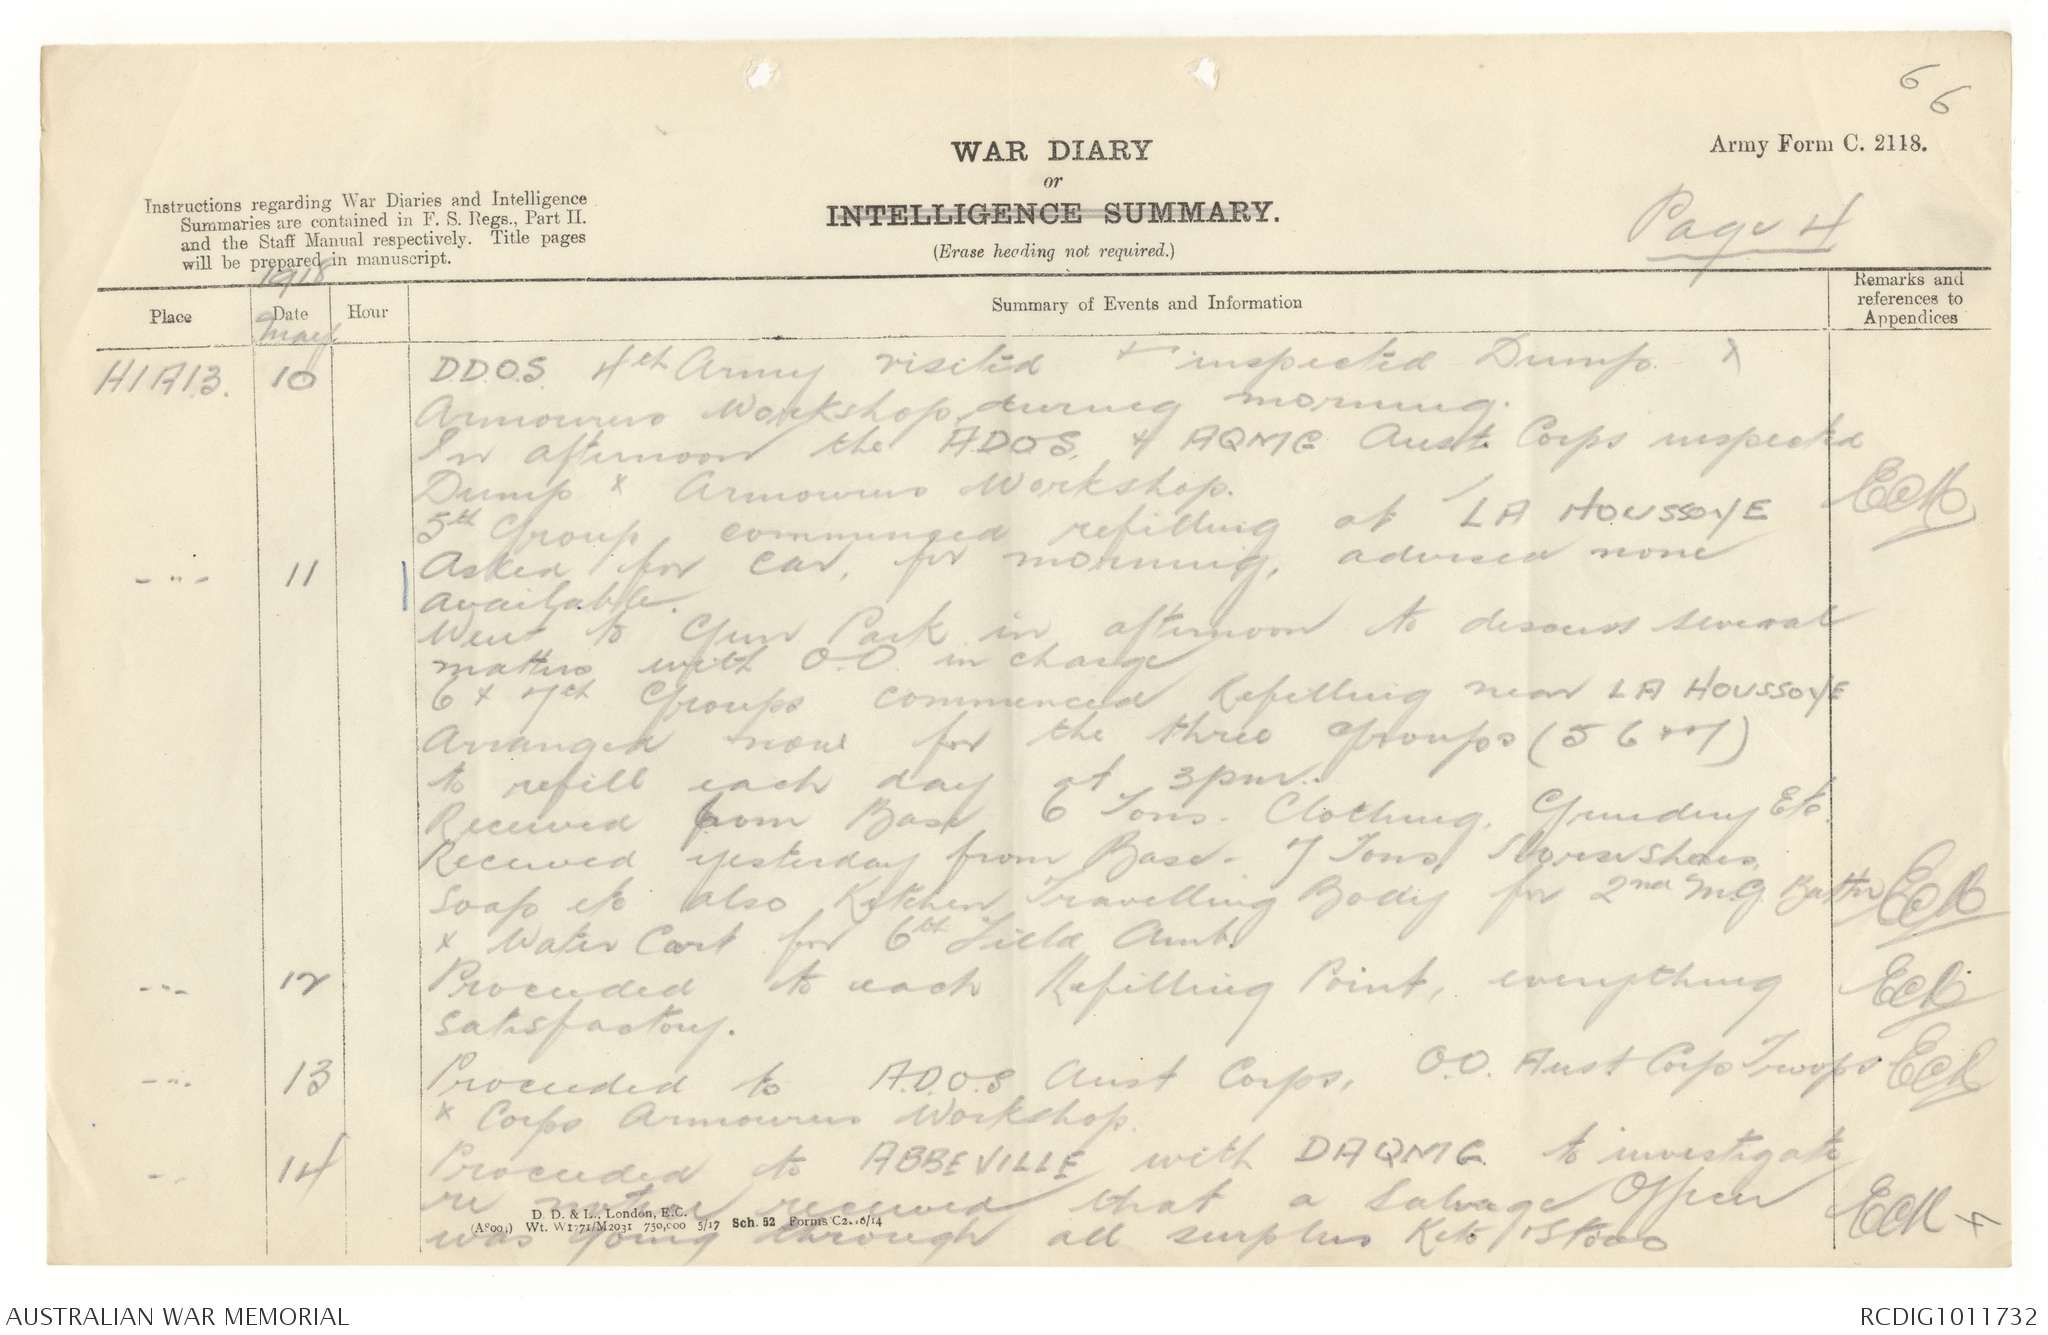 6
6
Army Form C. 2118.
WAR DIARY
or
INTELLIGENCE SUMMARY.
(Erase heading not required.)
Instructions regarding War Diaries and Intelligence
Summaries are contained in F. S. Regs., Part II.
and the Staff Manual respectively. Title pages
will be prepared in manuscript.
Page 4
Place
1918
Date
May
Hour
Summary of Events and Information
Remarks and
references to
Appendices
H1A13. 10 D.D.O.S. 4th Army visited + inspected Dump x
Armourers Workshop during morning.
In afternoon the A.D.O.S. + AQMG Aust. Corps inspected
Dump x Armourers Workshop.
5th Group commenced refilling at LA HOUSSOYE
-"- 11 Asked for car, for morning, advised none
available.
Went to Gun Park in afternoon to discuss several
matters with O.O. in charge
6 x 7th Groups commenced Refilling near LA HOUSSOYE
Arranged now for the three Groups (5 6 x 7)
to refill each day at 3pm.
Received from Base 6 Tons. Clothing, Grindery Etc.
Received yesterday from Base - 7 Tons, Horse Shoes,
Soap etc also Kitchen Travelling Body for 2nd M.G. Battn
x Water Cart for 6th Field Amb.
-"- 12 Proceeded to each Refilling Point, everything
satisfactory.
-"- 13 Proceeded to A.D.O.S Aust Corps, O.O. Aust Corp Troops
x Corps Armourers Workshop.
-"- 14 Proceeded to ABBEVILLE with DAQMG to investigate
re notice received that a Salvage Officer
was going through all surplus Kits / Stores
D. D. & L., London, E.C.
Wt. W1771/M2031 750,000 5/17 Sch. 52 Forms C2118/14
AUSTRALIAN WAR MEMORIAL
RCDIG1011732